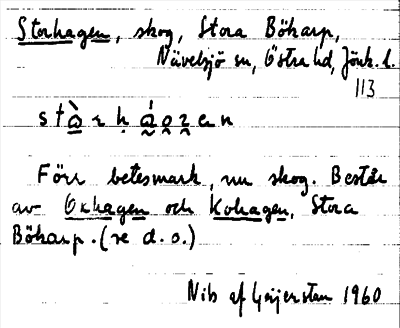 Storhagen, skog, Stora Bökarp,
Nävelsjö sn, Östra hd, Jönk. l.
113
Förr betesmark, nu skog. Består
av Oxhagen och Kohagen, Stora
Bökarp. (se d. o.)
Nils af Geijerstam 1960